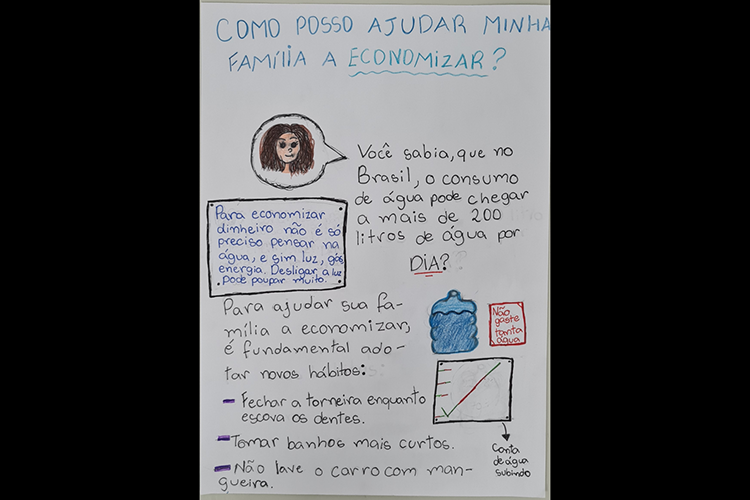 COMO POSSO AJUDAR MINHA
FAMÍLIA A ECONOMIZAR?
Você sabia, que no
Brasil, o consumo
de água pode chegar
a mais de 200
litros de água por
DIA?
Para economizar
dinheiro não é só
preciso pensar na
água, e sim luz, gás
energia. Desligar a luz
pode poupar muito.
Para ajudar sua fa-
mília a economizar,
é fundamental ado-
tar novos hábitos:
- Fechar a torneira enquanto
escova os dentes.
- Tomar banhos mais curtos.
- Não lave o carro com man-
gueira.
Não
gaste
tanta
água
Conta
de água
subindo